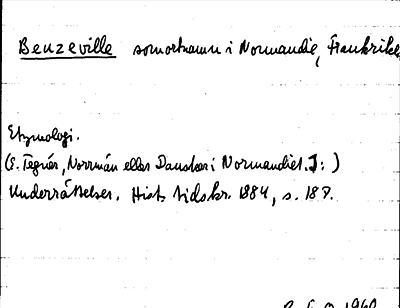 Benzeville som ortnamn i Normandie, Frankrike
Etymologi.
(E. Tegnér, Norrmän eller Danskar i Normandie?. I: )
Underrättelser. Hist. tidskr. 1884, s. 187.
1960